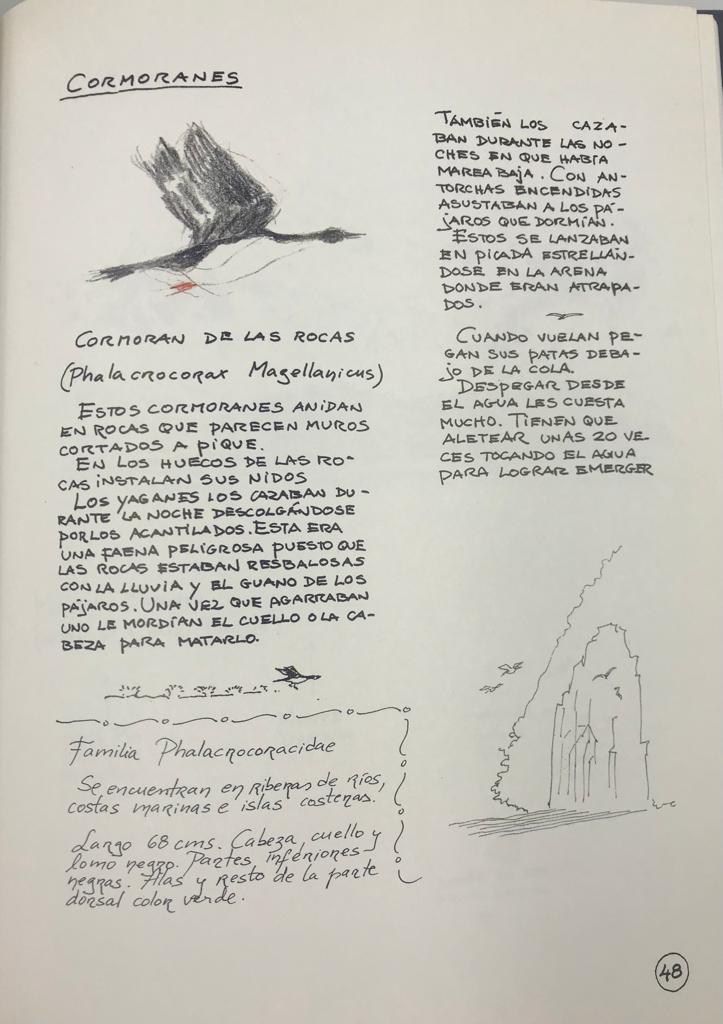 CORMORANES
CORMORAN DE LAS ROCAS
(Phalacrocorax Magellanicus)
ESTOS CORMORANES ANIDAN
EN ROCAS QUE PARECEN MUROS
CORTADOS A PIQUE.
EN LOS HUECOS DE LAS RO-
CAS INSTALAN SUS NIDOS
LOS YAGANES LOS CAZABAN DU-
RANTE LA NOCHE DESCOLGÁNDOSE
POR LOS ACANTILADOS. ESTA ERA
UNA FAENA PELIGROSA PUESTO QUE
LAS ROCAS ESTABAN RESBALOSAS
CON LA LLUVIA Y EL GUANO DE LOS
PÁJAROS. UNA VEZ QUE AGARRABAN
UNO LE MORDÍAN EL CUELLO O LA CA-
BEZA PARA MATARLO.
Familia Phalacrocoracidae
Se encuentran en riberas de ríos,
costas marinas e islas costeras.
Largo 68 cms. Cabeza, cuello y
lomo negro. Partes inferiores
negras. Alas y resto de la parte
dorsal color verde.
TAMBIÉN LOS CAZA-
BAN DURANTE LAS NO-
CHES EN QUE HABÍA
MAREA BAJA. CON AN-
TORCHAS ENCENDIDAS
ASUSTABAN A LOS PÁ-
JAROS QUE DORMÍAN.
ESTOS SE LANZABAN
EN PICADA ESTRELLÁN-
DOSE EN LA ARENA
DONDE ERAN ATRAPA-
DOS.
CUANDO VUELAN PE-
GAN SUS PATAS DEBA-
JO DE LA COLA.
DESPEGAR DESDE
EL AGUA LES CUESTA
MUCHO. TIENEN QUE
ALETEAR UNAS 20 VE-
CES TOCANDO EL AGUA
PARA LOGRAR EMERGER
48